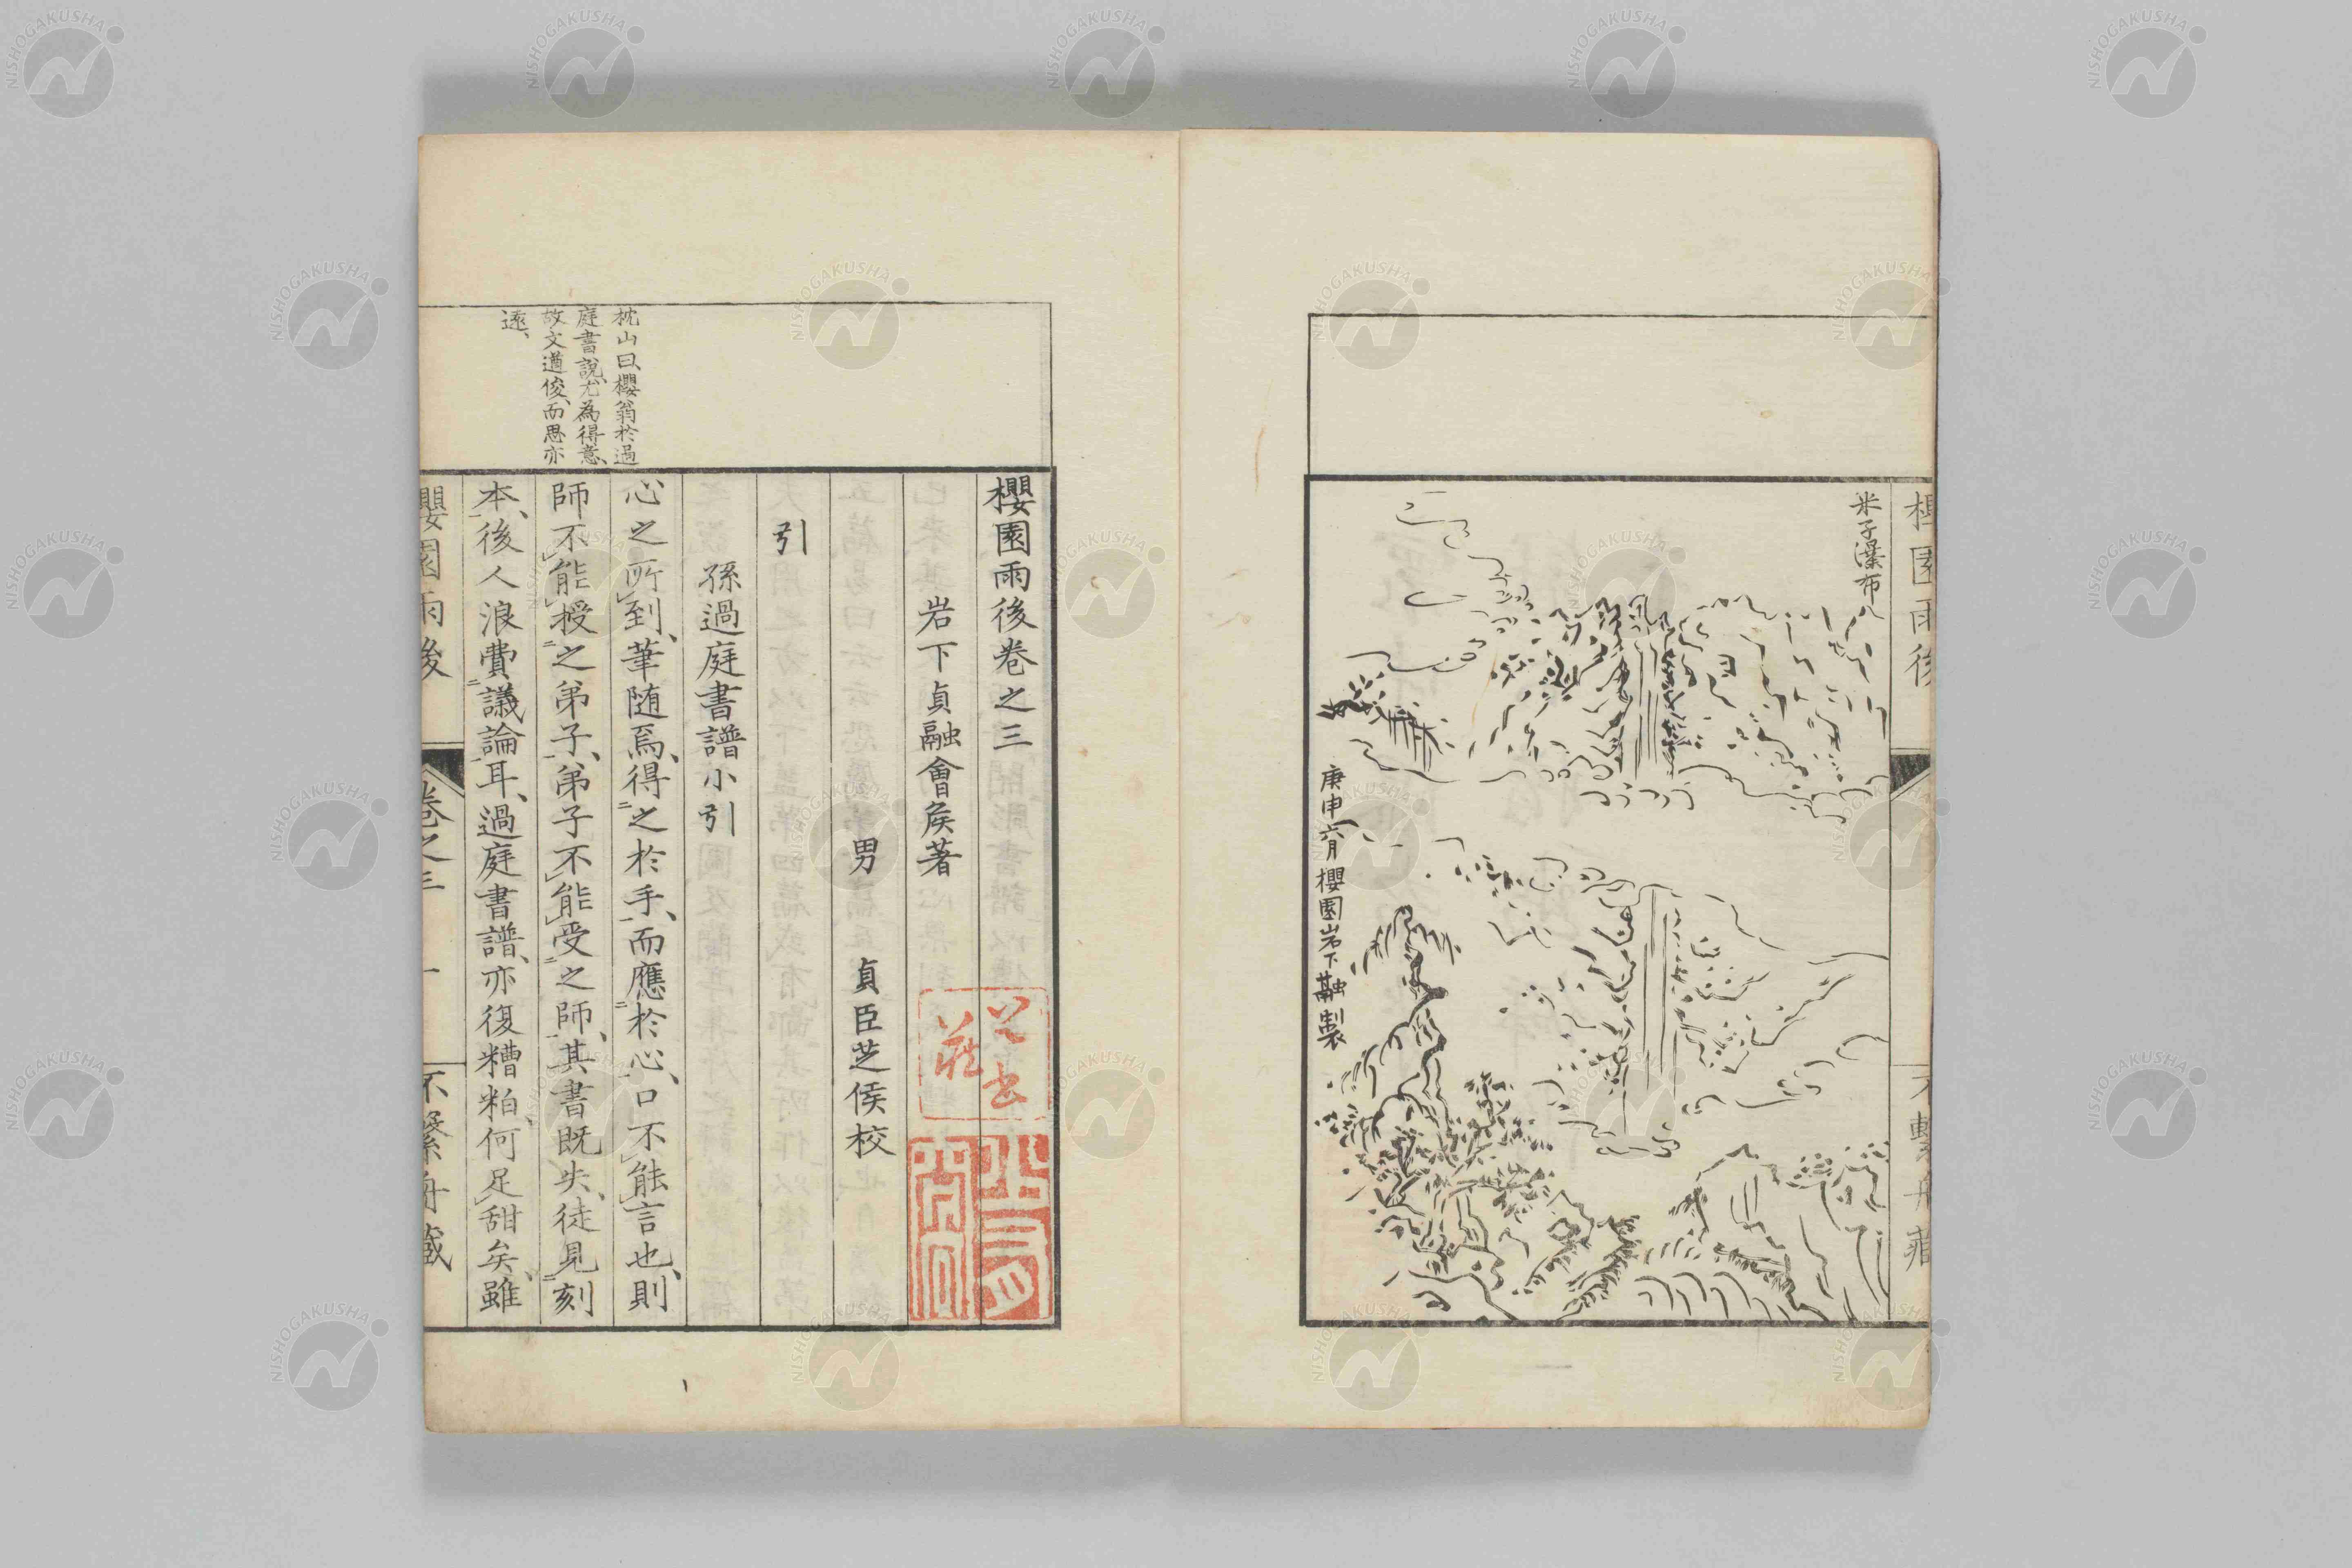 櫻園雨後
不繫舟藏
米子瀑布
庚申六月櫻園岩下融製
櫻園雨後卷之三
岩下貞融會矦著
男 貞臣芝侯校
引
孫過庭書譜小引
枕山曰、櫻翁於過
庭書說、尤為得意、
故文遒俊、而思亦
逐、
心之所到、筆随焉、得之於手、而應於心、口不能言也、則
師不能授之弟子、弟子不能受之師、其書既失、徒見刻
本、後人浪費議論耳、過庭書譜、亦復糟粕、何足甜矣、雖
櫻園雨後
卷之三
一
不繫舟藏
NISHOGAKUSHA